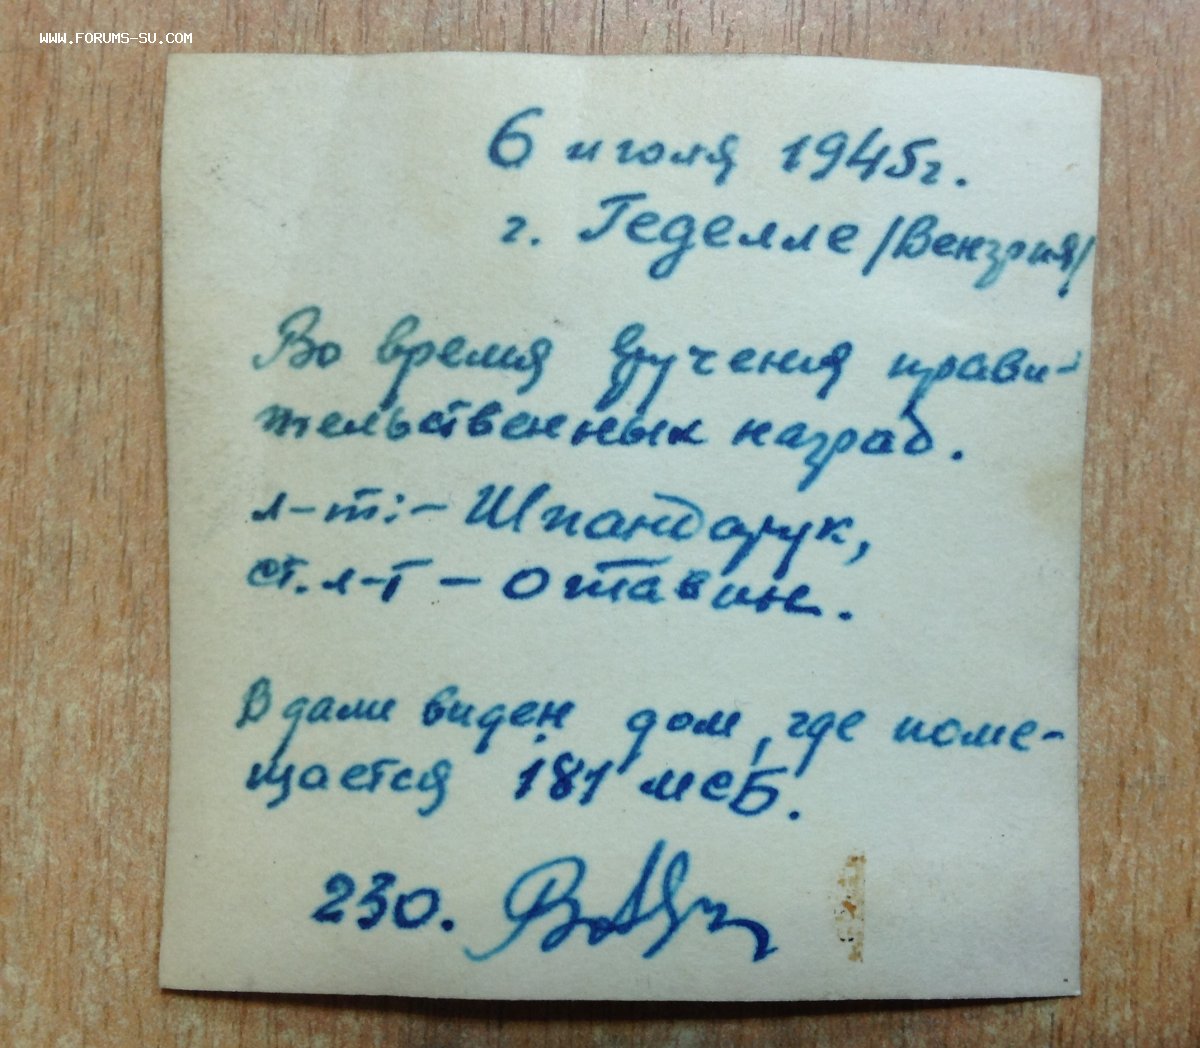 WWW.FORUMS-SU.COM
6 июля 1945г.
г. Геделле /Венгрия/
Во время вручения прави-
тельственных наград.
л-т: - Шпандарук,
ст. л-т - Оставин.
В дали виден дом, где поме-
щается 181 мсБ.
230.